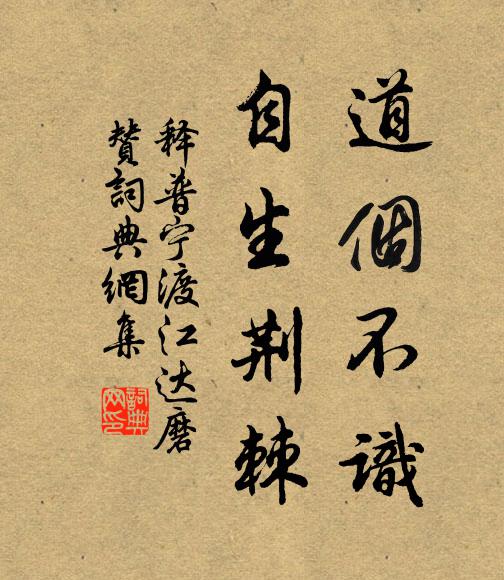 道個不識
自生荆棘
释普宁渡江达磨
贊詞典網集
詞典网印